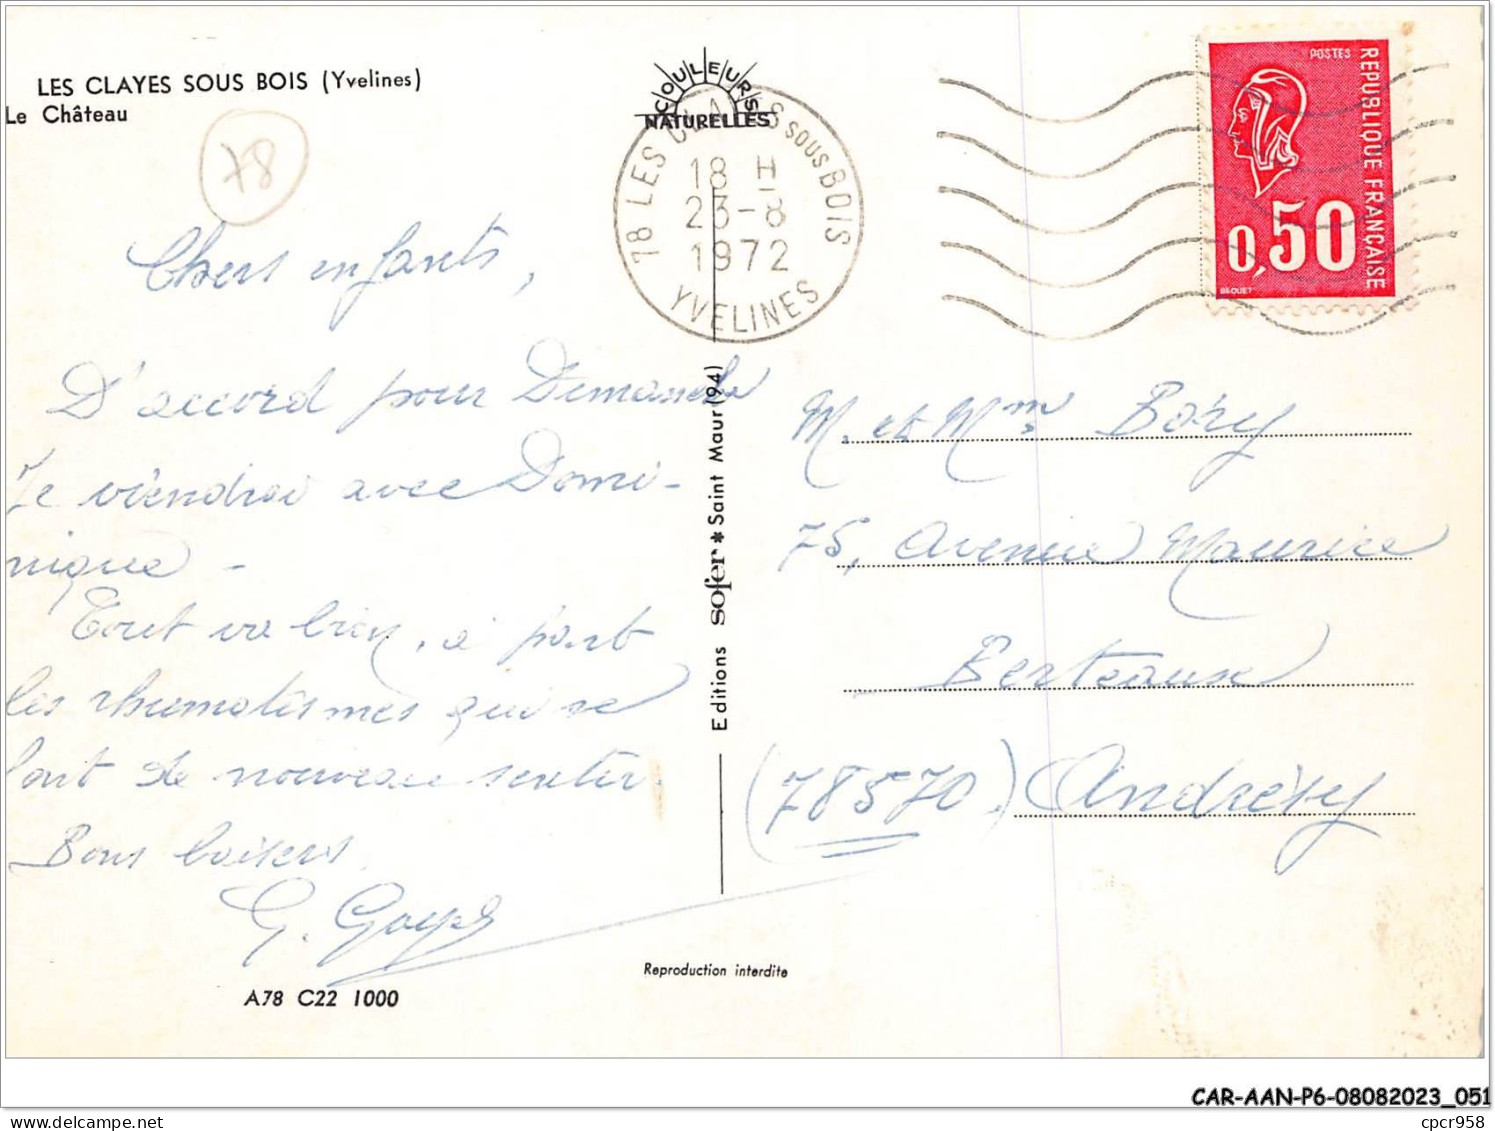 LES CLAYES SOUS BOIS (Yvelines)
Le Château
78
COULEURS
NATURELLES
78 LES CLAYES SOUS BOIS
18 H
23-8
1972
YVELINES
POSTES
REPUBLIQUE FRANÇAISE
0,50
BEQUET
Chers enfants,
D'accord pour Dimanche
Je viendrai avec Domi-
nique -
Tout va bien, à part
les rhumatismes qui se
font de nouveau sentir.
Bons baisers.
G.
Editions sofer * Saint Maur (94)
M. et Mme Bory
75, Avenue Maurice
Berteaux
(78570) Andrésy
Reproduction interdite
A78 C22 1000
CAR-AAN-P6-08082023_051
www.delcampe.net
cpcr958